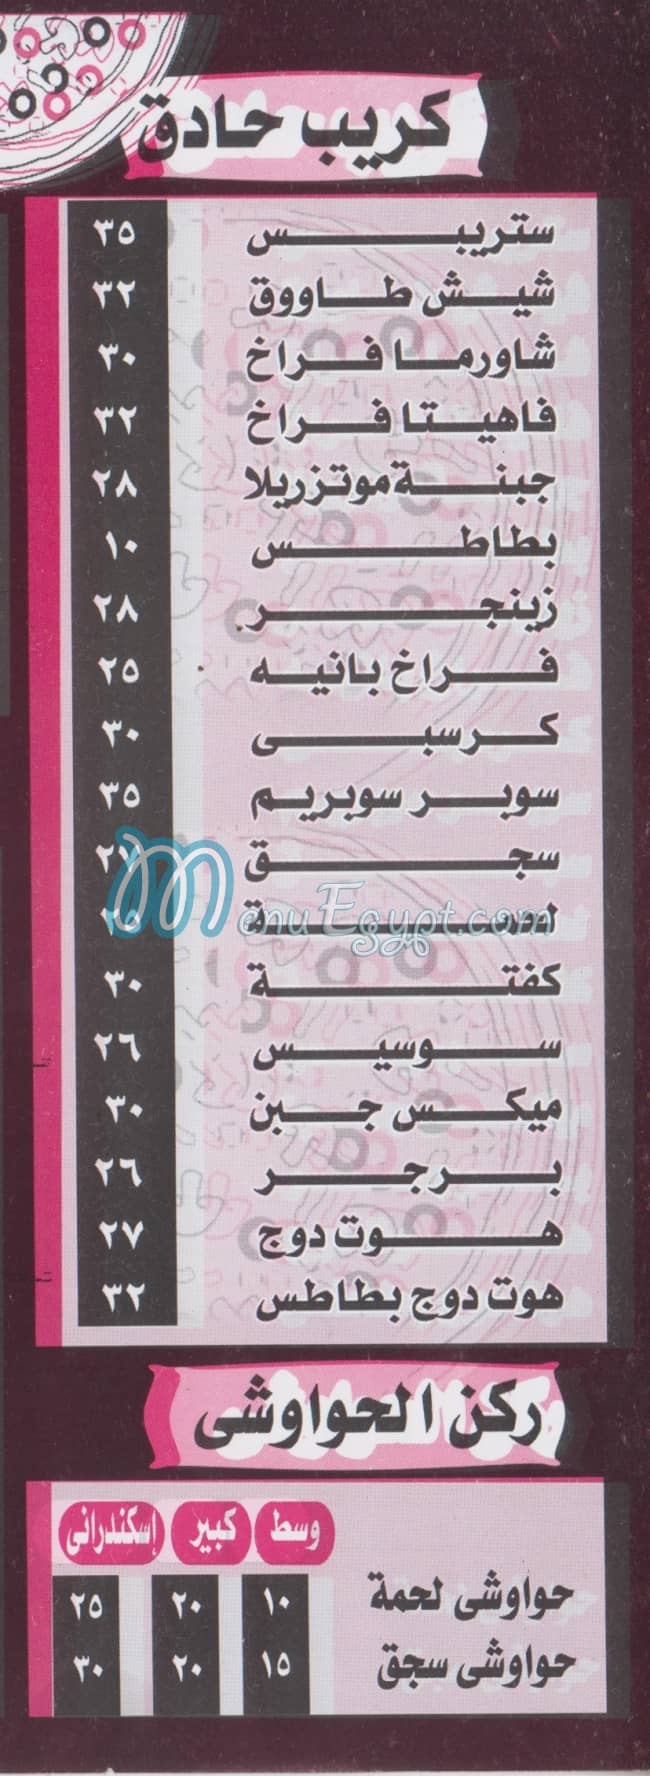 كريب حادق
ستريبس ٣٥
شيش طاووق ٣٢
شاورما فراخ ٣٠
فاهيتا فراخ ٣٢
جبنة موتزريلا ٢٨
بطاطس ١٠
زينجر ٢٨
فراخ بانيه ٢٥
كرسبى ٣٠
سوبر سوبريم ٣٥
سجق ٢٧
MenuEgypt.com
كفتة ٣٠
سوسيس ٢٦
ميكس جبن ٣٠
برجر ٢٦
هوت دوج ٢٧
هوت دوج بطاطس ٣٢
ركن الحواوشى
وسط كبير إسكندرانى
حواوشى لحمة ١٠ ٢٠ ٢٥
حواوشى سجق ١٥ ٢٠ ٣٠